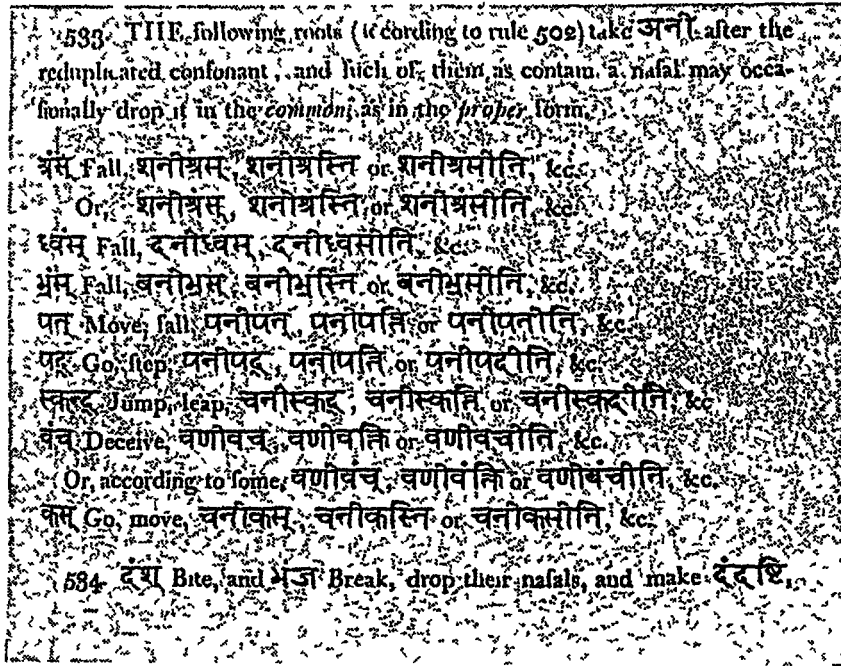 533. THE following roots (according to rule 502) take अनी after the
reduplicated consonant, and such of them as contain a nasal may occa-
sionally drop it in the common, as in the proper form.
श्रंस् Fall, शनीश्रस्, शनीश्रस्ति or शनीश्रसीति, &c.
Or, शनीश्रंस्, शनीश्रंस्ति or शनीश्रंसीति, &c.
ध्वंस् Fall, दनीध्वस्, दनीध्वसीति, &c.
भ्रंस् Fall, बनीभ्रस्, बनीभ्रस्ति or बनीभ्रसीति, &c.
पत् Move, fall, पनीपत्, पनीपत्ति or पनीपतीति, &c.
पद् Go, step, पनीपद्, पनीपत्ति or पनीपदीति, &c.
स्कन्द् Jump, leap, चनीस्कद्, चनीस्कत्ति or चनीस्कदीति, &c.
वंच् Deceive, वणीवच्, वणीवक्ति or वणीवचीति, &c.
Or, according to some, वणीवंच्, वणीवंक्ति or वणीवंचीति, &c.
कस् Go, move, चनीकस्, चनीकस्ति or चनीकसीति, &c.
534. दंश् Bite, and भंज Break, drop their nasals, and make दंदष्टि,